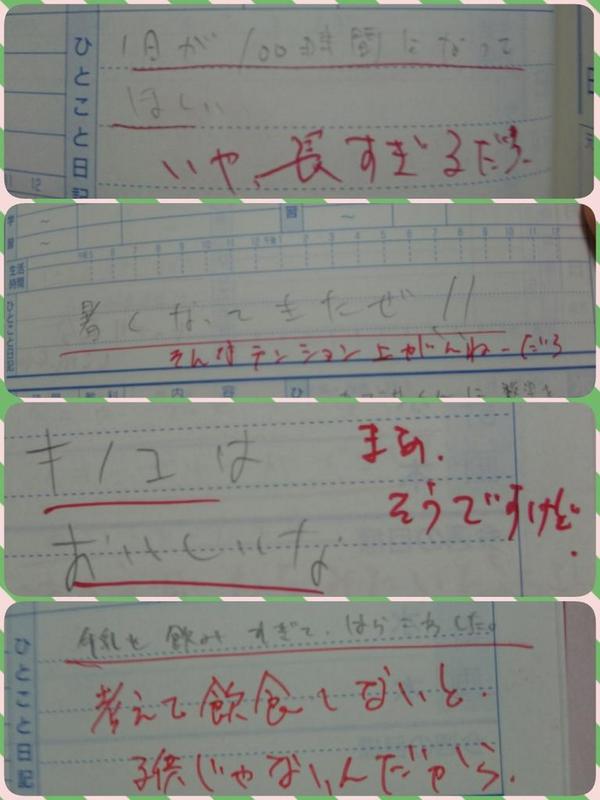 ひとこと日記
1日が100時間になって
ほしい
いや、長すぎるだろ
11 12
学習
~
~
生活時間
ひとこと日記
暑くなってきたぜ!!
そんなテンション上がんねーだろ
内 容
キノコは
まあ、
そうですけど.
おいしいな
ひとこと日記
牛乳を飲みすぎて、はらこわした。
考えて飲食してないと.
子供じゃないんだから.